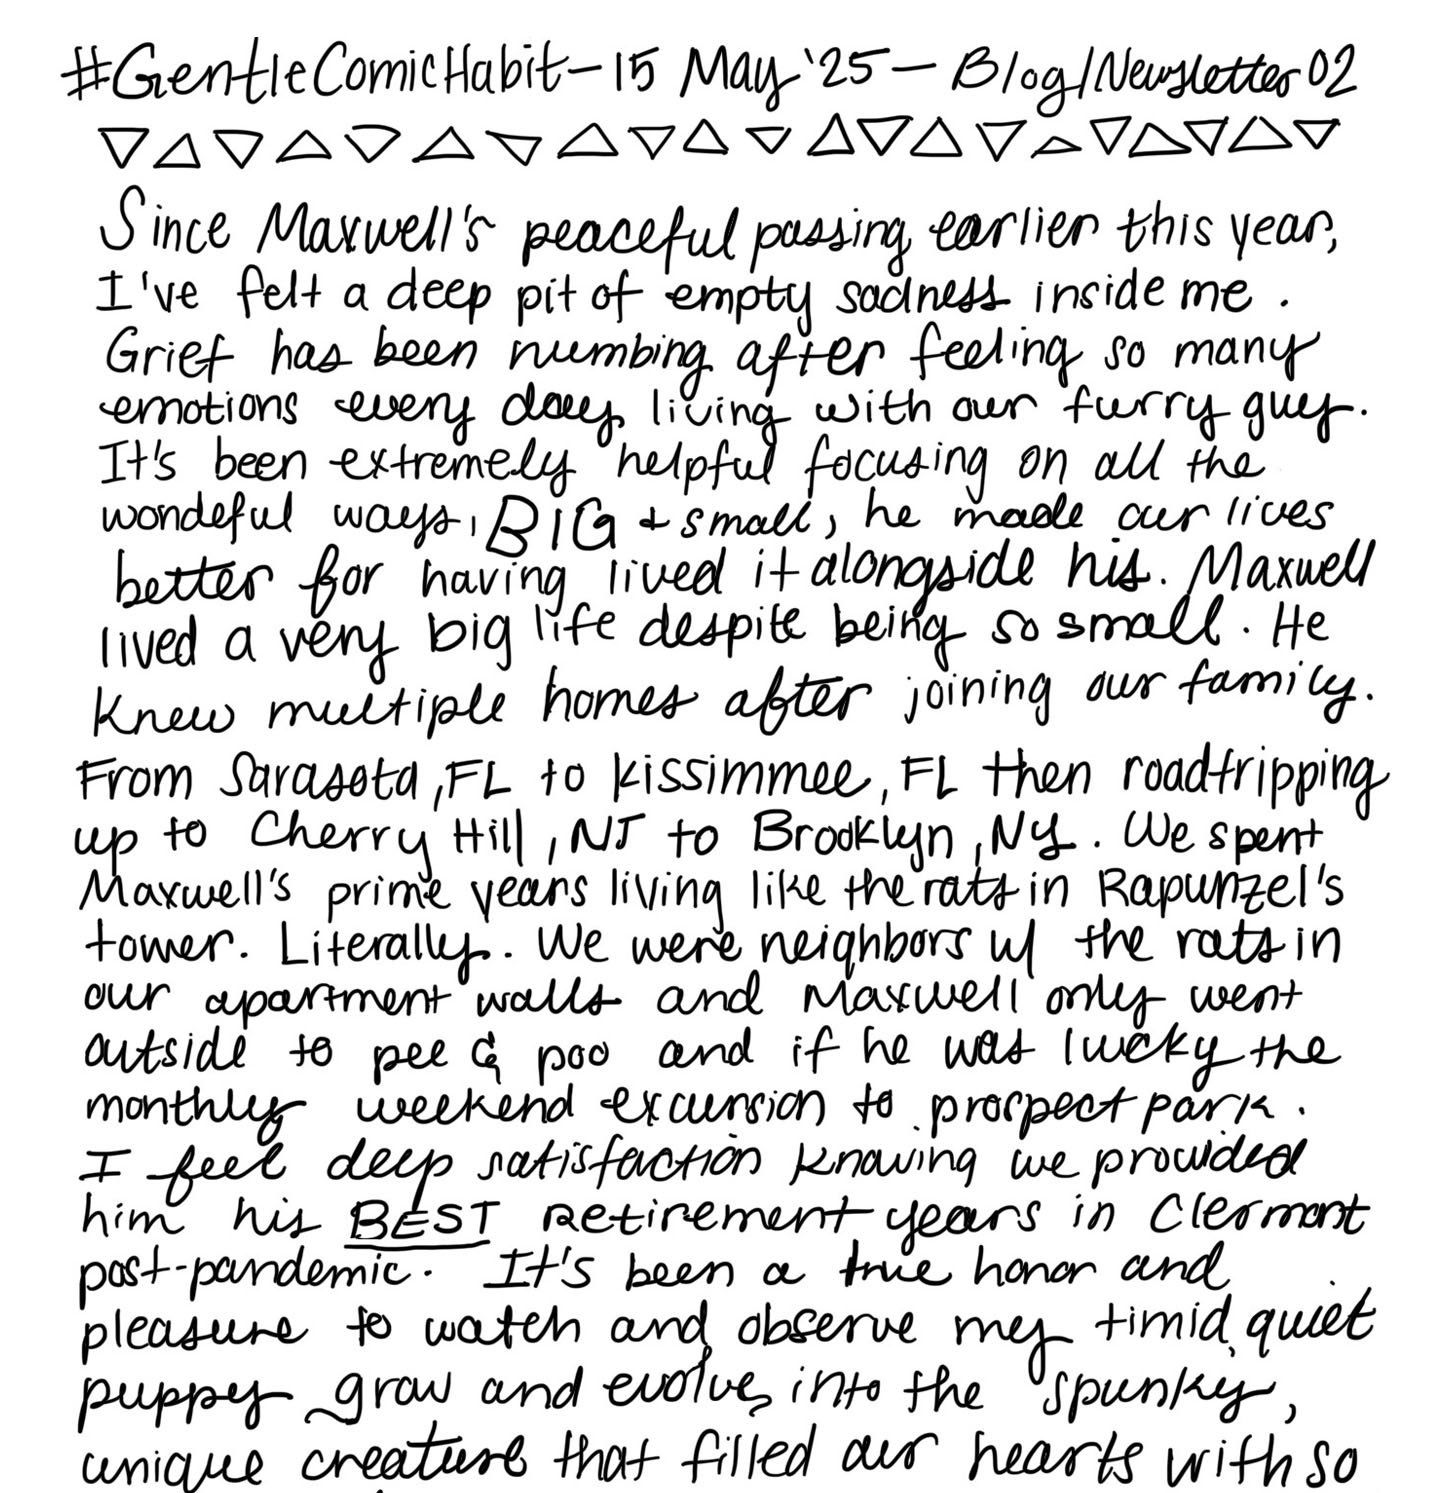 #GentleComicHabit-15 May '25 - Blog/Newsletter 02
Since Maxwell's peaceful passing earlier this year,
I've felt a deep pit of empty sadness inside me.
Grief has been numbing after feeling so many
emotions every day living with our furry guy.
It's been extremely helpful focusing on all the
wondeful ways, BIG + small, he made our lives
better for having lived it alongside his. Maxwell
lived a very big life despite being so small. He
knew multiple homes after joining our family.
From Sarasota, FL to Kissimmee, FL then roadtripping
up to Cherry Hill, NJ to Brooklyn, NY. We spent
Maxwell's prime years living like the rats in Rapunzel's
tower. Literally. We were neighbors w/ the rats in
our apartment walls and Maxwell only went
outside to pee & poo and if he was lucky the
monthly weekend excursion to prospect park.
I feel deep satisfaction knowing we provided
him his BEST retirement years in Clermont
post-pandemic. It's been a true honor and
pleasure to watch and observe my timid, quiet
puppy grow and evolve into the spunky,
unique creature that filled our hearts with so